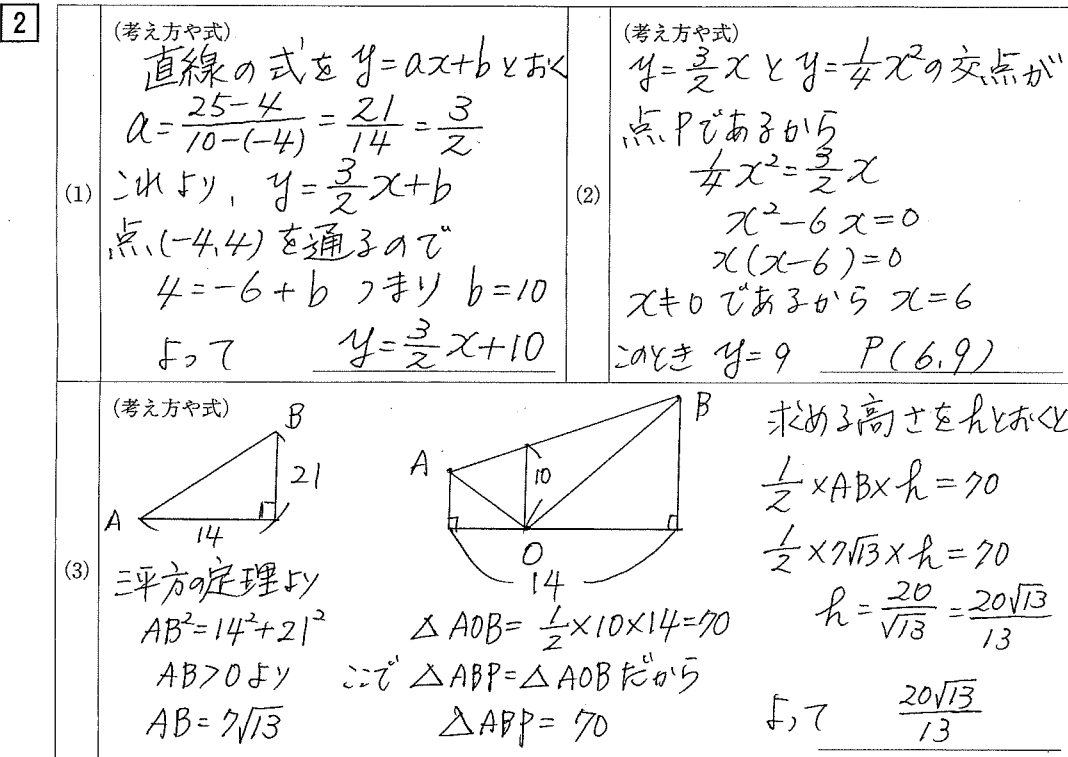 2
(1)
(考え方や式)
直線の式を y=ax+b とおく
a=\frac{25-4}{10-(-4)}=\frac{21}{14}=\frac{3}{2}
これより, y=\frac{3}{2}x+b
点(-4,4)を通るので
4=-6+b つまり b=10
よって y=\frac{3}{2}x+10
(2)
(考え方や式)
y=\frac{3}{2}x と y=\frac{1}{4}x²の交点が
点Pであるから
\frac{1}{4}x²=\frac{3}{2}x
x²-6x=0
x(x-6)=0
x≠0 であるから x=6
このとき y=9 P(6,9)
(3)
(考え方や式)
B
21
A
14
三平方の定理より
AB²=14²+21²
AB>0より
AB=7√13
B
A
10
O
14
△AOB=\frac{1}{2}×10×14=70
ここで △ABP=△AOBだから
△ABP=70
求める高さをhとおくと
\frac{1}{2}×AB×h=70
\frac{1}{2}×7√13×h=70
h=\frac{20}{√13}=\frac{20√13}{13}
よって \frac{20√13}{13}